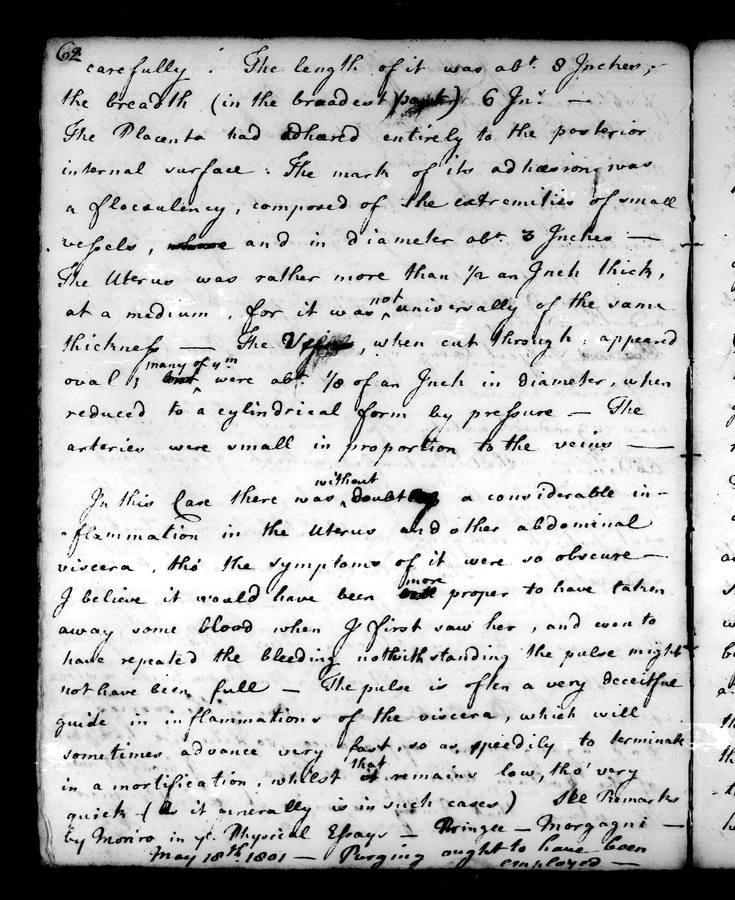 62
carefully . The length of it was abt. 8 Inches,-
the breadth (in the broadest part) 6 Ins. —
The Placenta had adhered entirely to the posterior
internal surface : The mark of its adhæsion was
a flocculency, composed of the extremities of small
vessels, and in diameter abt. 3 Inches —
The Uterus was rather more than 1/2 an Inch thick,
at a medium , for it was not universally of the same
thickness — The , when cut through ; appeared
oval ; many of ym were abt. 1/8 of an Inch in diameter, when
reduced to a cylindrical form by pressure — The
arteries were small in proportion to the veins —
In this Case there was without doubt a considerable in-
-flammation in the Uterus and other abdominal
viscera , tho' the symptoms of it were so obscure —
I believe it would have been more proper to have taken
away some blood when I first saw her , and even to
have repeated the bleeding notwithstanding the pulse might
not have been full — The pulse is often a very deceitful
guide in inflammations of the viscera, which will
sometimes advance very fast, so as speedily to terminate
in a mortification, whilst that remains low, tho' very
quick - (as it generally is in such cases) See Remarks
by Monro in ye. Physical Essays — Pringle — Morgagni —
May 18th. 1801 — Purging ought to have been
employed —